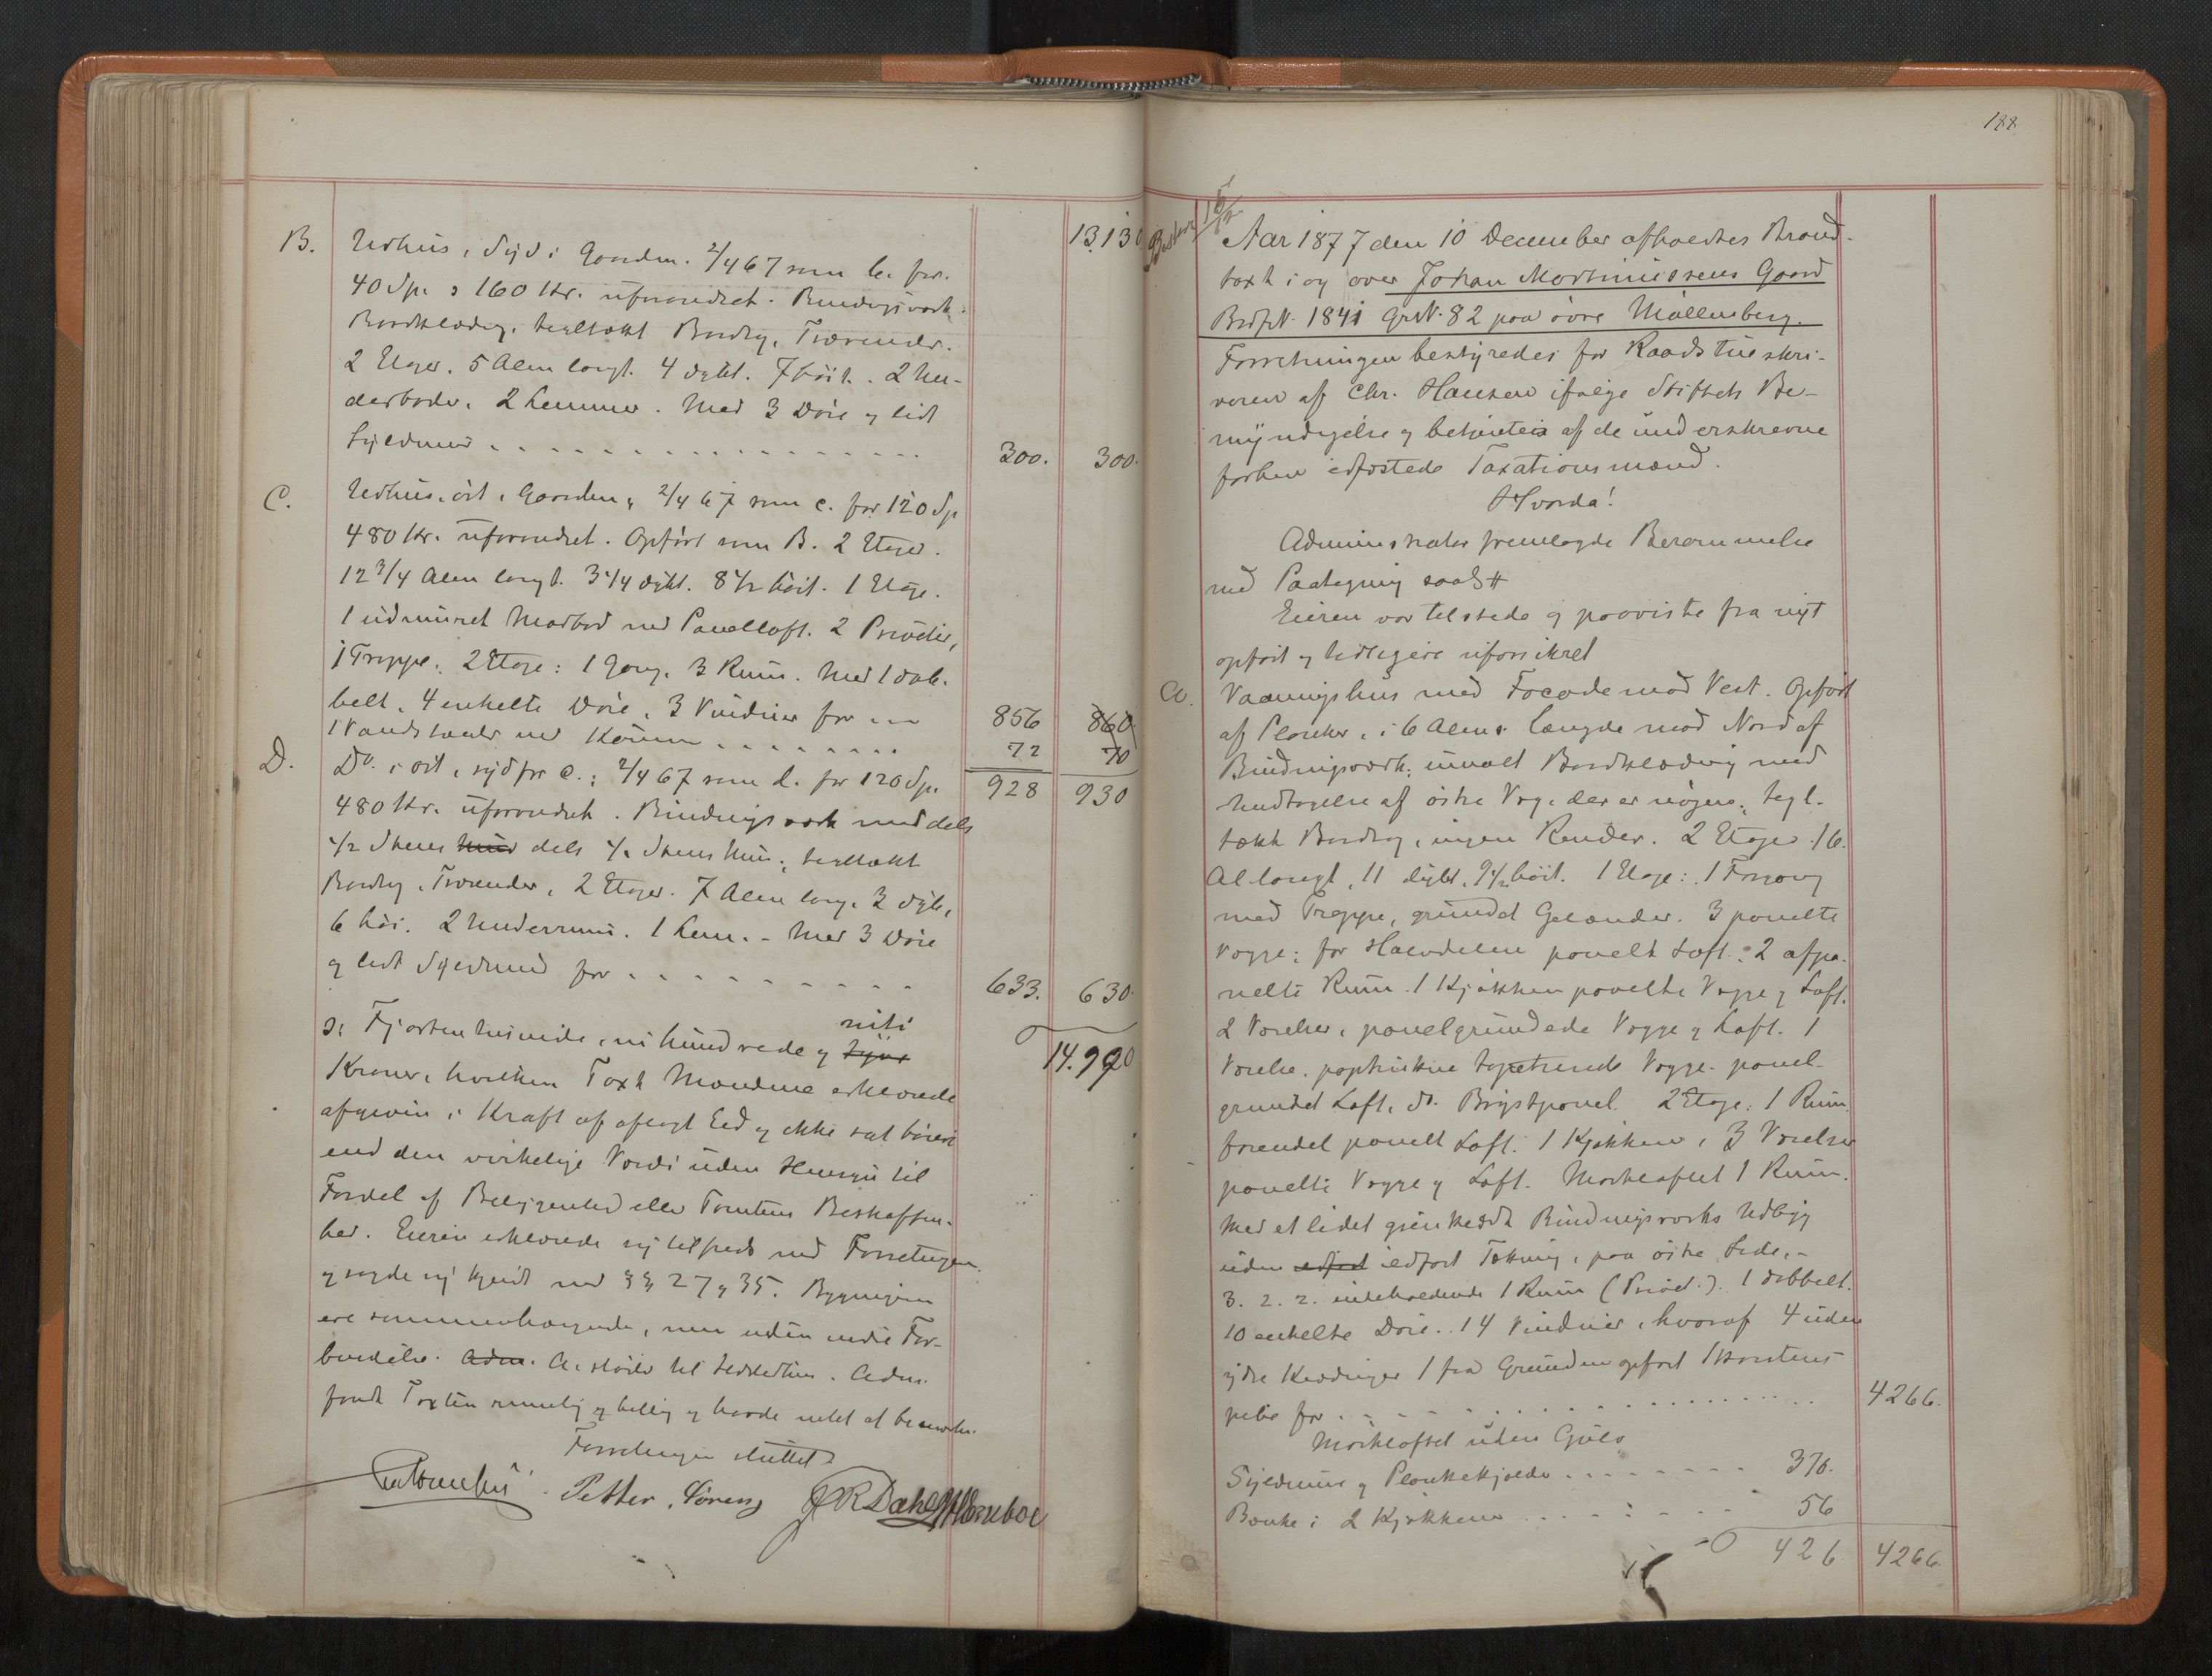 13.130
B. Udhus, Syd i Gaarden. 2/4 67 som b. for
40 Sp. ɔ: 160 Kr. uforandret. Bindingsværk,
Bordklædng, tegltækt Bordtag, Trærender.
2 Etager. 5 Alen langt. 4 dybt. 7 höit. 2 Un-
derboder, 2 Lemmer. Med 3 Döre og lidt
Syldmur . . . . . 300. 300.
C. Udhus, öst i Gaarden, 2/4 67 som c. for 120 Sp
480 Kr. uforandret. Opført som B. 2 Etager.
12 3/4 Alen langt. 3 1/4 dybt. 8 1/2 höit. 1 Etage.
1 udmuret Madbod med Panelloft. 2 Privetter,
1 Trappe. 2 Etage: 1 Gang, 3 Rum. Med 1 dob-
belt, 4 enkelte Döre, 3 Vinduer for 856 860
1 Vandspeler med Kumme . . . . . 72 70
928 930
D. Do. i öst, syd for C.; 2/4 67 som d. for 120 Sp.
480 Kr. uforandret. Bindingsværk med dels
1/2 Stens Mur dels 1/4 Stens Mur, tegltækt
Bordtag, Trærender, 2 Etager. 7 Alen lang, 3 dyb,
6 höi. 2 Underrum. 1 Lem. - Med 3 Döre
og lidt Syldmur for . . . . . 633. 630.
ɔ: Fjortentusinde, ni hundrede og tyve niti
14.990
Kroner, hvilken Taxt Mændene erklærede
afgiven i Kraft af aflagt Eed og ikke sat höiere
end den virkelige Værdi uden Hensyn til
Fordel af Beliggenhed eller Tomtens Beskaffen-
hed. Eieren erklærede sig tilfreds med Forretningen
og sagde sig kjendt med §§ 27 og 35. Bygningerne
ere sammenhængende, men uden indre For-
bindelse. Adm. A. støder til . Adm.
fandt Taxten rimelig og billig og havde intet at bemærke.
Forretningen sluttet
Petter Sörens JRDahl
188
Aar 1877 den 10 December afholdtes Brand-
taxt i og over Johan Mortinussens Gaard
BrdfN. 1841 GrN. 82 paa övre Möllenberg.
Forretningen bestyredes for Raadstueskri-
veren af Chr. Hansen ifølge Stiftets Be-
myndigelse og betjentes af de underskrevne
forhen edfæstede Taxationsmænd.
Hvorda!
Administrator fremlagde Berammelse
med Paategning saal: #
Eieren var tilstede og paaviste fra nyt
opført og tidligere uforsikret
A. Vaaningshus med Facade mod Vest. Opført
af Planker, i 6 Alens Længde mod Nord af
Bindingsværk, umalt Bordklædning med
Undtagelse af östre Væg, der er nögen, tegl-
tækt Bordtag, ingen Render. 2 Etager. 16
Al langt, 11 dybt, 9 1/2 höit. 1 Etage: 1 Forgang
med Trappe, grundet Gelænder. 3 panelte
Vægge, for Halvdelen panelt Loft. 2 afpa-
nelte Rum. 1 Kjökken panelte Vægge og Loft.
2 Værelser, panelgrundede Vægge og Loft. 1
Værelse, papstrukne tapetserede Vægge, panel-
grundet Loft, do. Brystpanel. 2 Etage: 1 Rum
forendel panelt Loft. 1 Kjökken, 3 Værelser
panelte Vægge og Loft. Mørkeloftet 1 Rum.
Med et lidet gjenklædt Bindingsværks Udbyg
uden edfort ildfast Tækning, paa östre Side, -
3. 2. 2. indeholdende 1 Rum (Privet.). 1 dobbelt.
10 enkelte Döre. 14 Vinduer, hvoraf 4 uden
ydre Klædninger 1 fra Grunden opført Skorstens-
pibe for . . . . . 4266.
Mörkloftet uden Gulv
Syldmur og Plankekjelder . . . . . 370.
Bænke i 2 Kjøkkener . . . . . 56
426 4266.